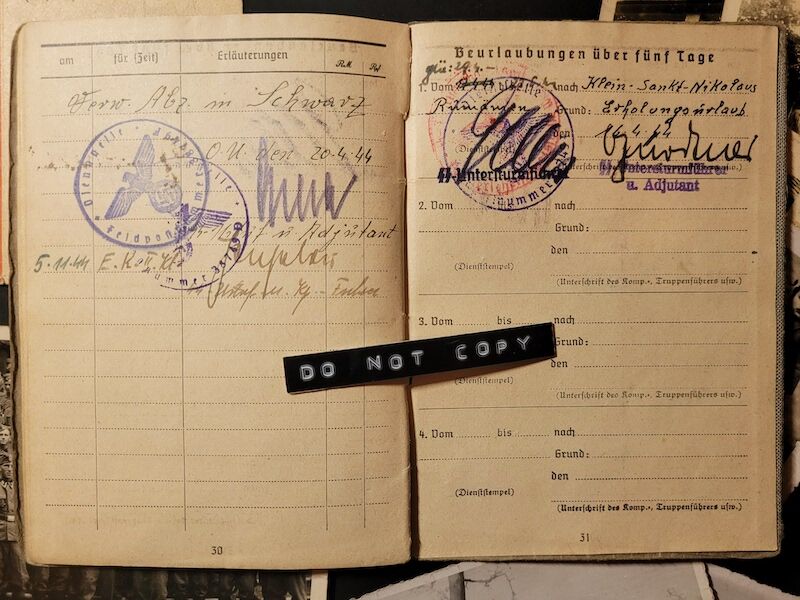 am für (Zeit) Erläuterungen
RM Rpf
Verw. Abz. in Schwarz
O.U. den 20.4.44
Dienststelle
Feldpost
u. Adjutant
5.11.44 E.K. II. Kl.
nummer 35769 D
30
DO NOT COPY
Beurlaubungen über fünf Tage
1. Vom bis nach Klein-Sankt-Nikolaus
Rumänien Grund: Erholungsurlaub
den 14.4.44
(Dienststempel)
SS-Untersturmführer
nummer
SS-Untersturmführer
u. Adjutant
2. Vom bis nach
Grund:
den
(Dienststempel)
(Unterschrift des Komp.-, Truppenführers usw.)
3. Vom bis nach
Grund:
den
(Dienststempel)
(Unterschrift des Komp.-, Truppenführers usw.)
4. Vom bis nach
Grund:
den
(Dienststempel)
(Unterschrift des Komp.-, Truppenführers usw.)
31